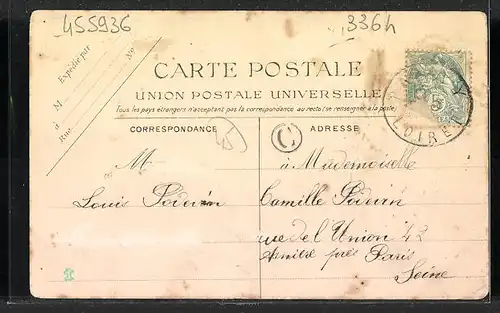 455936
336h
Expédié par
M
à
Rue
No
CARTE POSTALE
UNION POSTALE UNIVERSELLE
Tous les pays étrangers n'acceptent pas la correspondance au recto (se renseigner à la poste)
CORRESPONDANCE
45
C
ADRESSE
LOIRET
M.
Louis Poidevin
à Mademoiselle
Camille Poidevin
rue de l'Union 42
près Paris
Seine